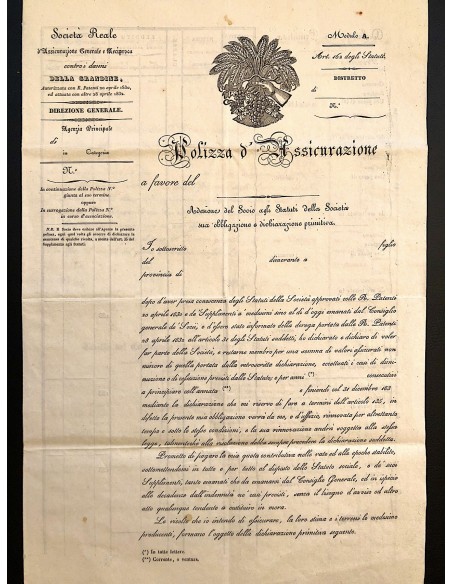 Società Reale
d'Assicurazione Generale e Reciproca
contro i danni
DELLA GRANDINE,
Autorizzata con R. Patenti 20 aprile 1830,
ed attuata con altre 28 aprile 1831.
DIREZIONE GENERALE.
Agenzia Principale
di
in Categoria
N.°
In continuazione della Polizza N.°
giunta al suo termine,
oppure
in surrogazione della Polizza N.°
in corso d'associazione.
Modulo A.
Art. 162 degli Statuti.
DISTRETTO
di
N.°
Polizza d'Assicurazione
a favore del
Adesione del Socio agli Statuti della Società
sua obbligazione e dichiarazione primitiva.
Io sottoscritto figlio
del dimorante a
provincia di
dopo d'aver preso conoscenza degli Statuti della Società approvati colle R. Patenti
20 aprile 1830 e de' Supplementi a' medesimi sino al dì d'oggi emanati dal Consiglio
generale de' Socii, e d'essere stato informato della deroga portata dalle R. Patenti
28 aprile 1831 all'articolo 31 degli Statuti suddetti, ho dichiarato e dichiaro di voler
far parte della Società, e restarne membro per una somma di valori assicurati non
minore di quella portata dalla retroscritta dichiarazione, eccettuati i casi di diminuzione
e di cessazione previsti dallo Statuto; e per anni (*) consecutivi
a principiare coll'annata (**) e finiendi col 31 dicembre 183
mediante la dichiarazione che mi riservo di fare a termini dell'articolo 135, in
difetto la presente mia obbligazione verrà da me, e d'uffizio, rinnovata per altrettanto
tempo e sotto le stesse condizioni, e la sua rinnovazione andrà soggetta alla stessa
legge,
Prometto di pagare la mia quota contributiva nelle rate ed alle epoche stabilite,
sottomettendomi in tutto e per tutto al disposto dello Statuto sociale, e de' suoi
Supplimenti, tanto emanati che da emanarsi dal Consiglio Generale, ed in ispecie
alla decadenza dall'indennità ne' casi previsti, senza il bisogno d'avviso od altro
atto qualunque tendente a costituirmi in mora.
Le raccolte che io intendo di assicurare, la loro stima e i terreni che medesime
producenti, formano l'oggetto della dichiarazione primitiva seguente.
(*) In tutte lettere.
(**) Corrente, o ventura.